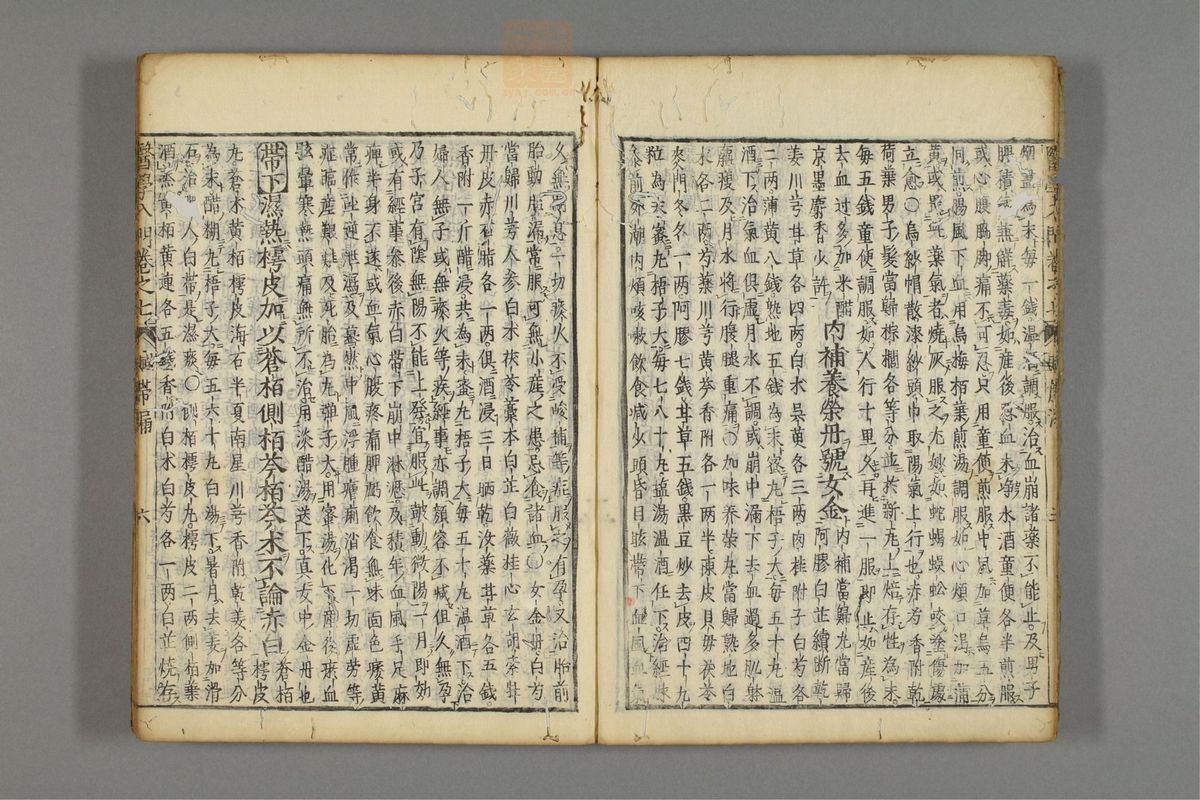 烟盡為末每一錢溫酒調服治血崩諸藥不能止及男子
脾積
或心腰脇脚痛不可忍只用童便煎服中風加草烏五分
間煎腸風下血用烏梅栢葉煎湯調服如心煩口渴加蒲
黃或惡此藥氣者燒灰服之尤妙如蛇蝎蜈蚣咬塗傷處
立愈〇烏紗帽散漆紗頭巾取陽氣上行也赤芍香附乾
荷葉男子髮當歸棕櫚各等分並於新瓦上焙存性為末
每五錢童便調服如人行十里久再進一服即止如産後
去血过多加米醋
京墨麝香少許
內補養榮丹號女金
內補當歸丸當歸
阿膠白芷續斷乾
姜川芎甘草各四兩白朮吳萸各三兩肉桂附子白芍各
二兩蒲黃八錢熟地五錢為末蜜丸梧子大每五十丸溫
酒下治氣血俱虛月水不調或崩中漏下去血過多肌躰
羸瘦及月水將行腰腿重痛〇加味养荣丸當歸熟地白
朮各二兩芍藥川芎黃芩香附各一兩半陳皮貝毋茯苓
麥門冬各一兩阿膠七錢甘草五錢黑豆炒去皮四十九
粒為末蜜丸梧子大每七八十丸盐湯溫酒任下治經脉
叅前外潮內煩咳嗽飲食減少頭昏目眩帶下血風血氣
久無嗣息一切痰火不受峻補等症服之有孕又治胎前
胎動胎漏常服可無小産之患忌食諸血〇女金丹白芍
當歸川芎人參白朮茯苓藁本白芷白薇桂心玄胡索牡
丹皮赤石脂各一兩俱酒浸三日晒乾沒藥甘草各五錢
香附一斤醋浸共為末蜜丸梧子大每五十丸溫酒下治
婦人無子或無痰火等疾經事亦調顔容不減但久無孕
乃子宮有陰無陽不能上發宜服此鼓動微陽一月即効
或有經事叅後赤白帶下崩中淋瀝及積年血風手足麻
痺半身不遂或血氣心腹疼痛脾胃飲食無味面色痿黃
常作吐逆無溫及暴熱中風浮腫癲癎消渴一切虛勞等
症臨産艱難及死胎為丸彈子大用蜜湯化下産後痰血
眩暈寒熱頭痛無所不治用淡醋湯送下真女中金丹也
帶下濕熱樗皮加以蒼栢側栢芩栢芩朮不論赤白
蒼栢
樗皮
丸蒼朮黃栢樗皮海石半夏南星川芎香附乾姜各等分
為末醋糊丸梧子大每五六十丸白湯下暑月去姜加滑
石治肥人白帶是濕痰〇側栢樗皮丸樗皮二兩側栢葉
酒蒸黃栢黃連各五錢香附白朮白芍各一兩白芷燒存
醫學入門卷之七
帶漏
六